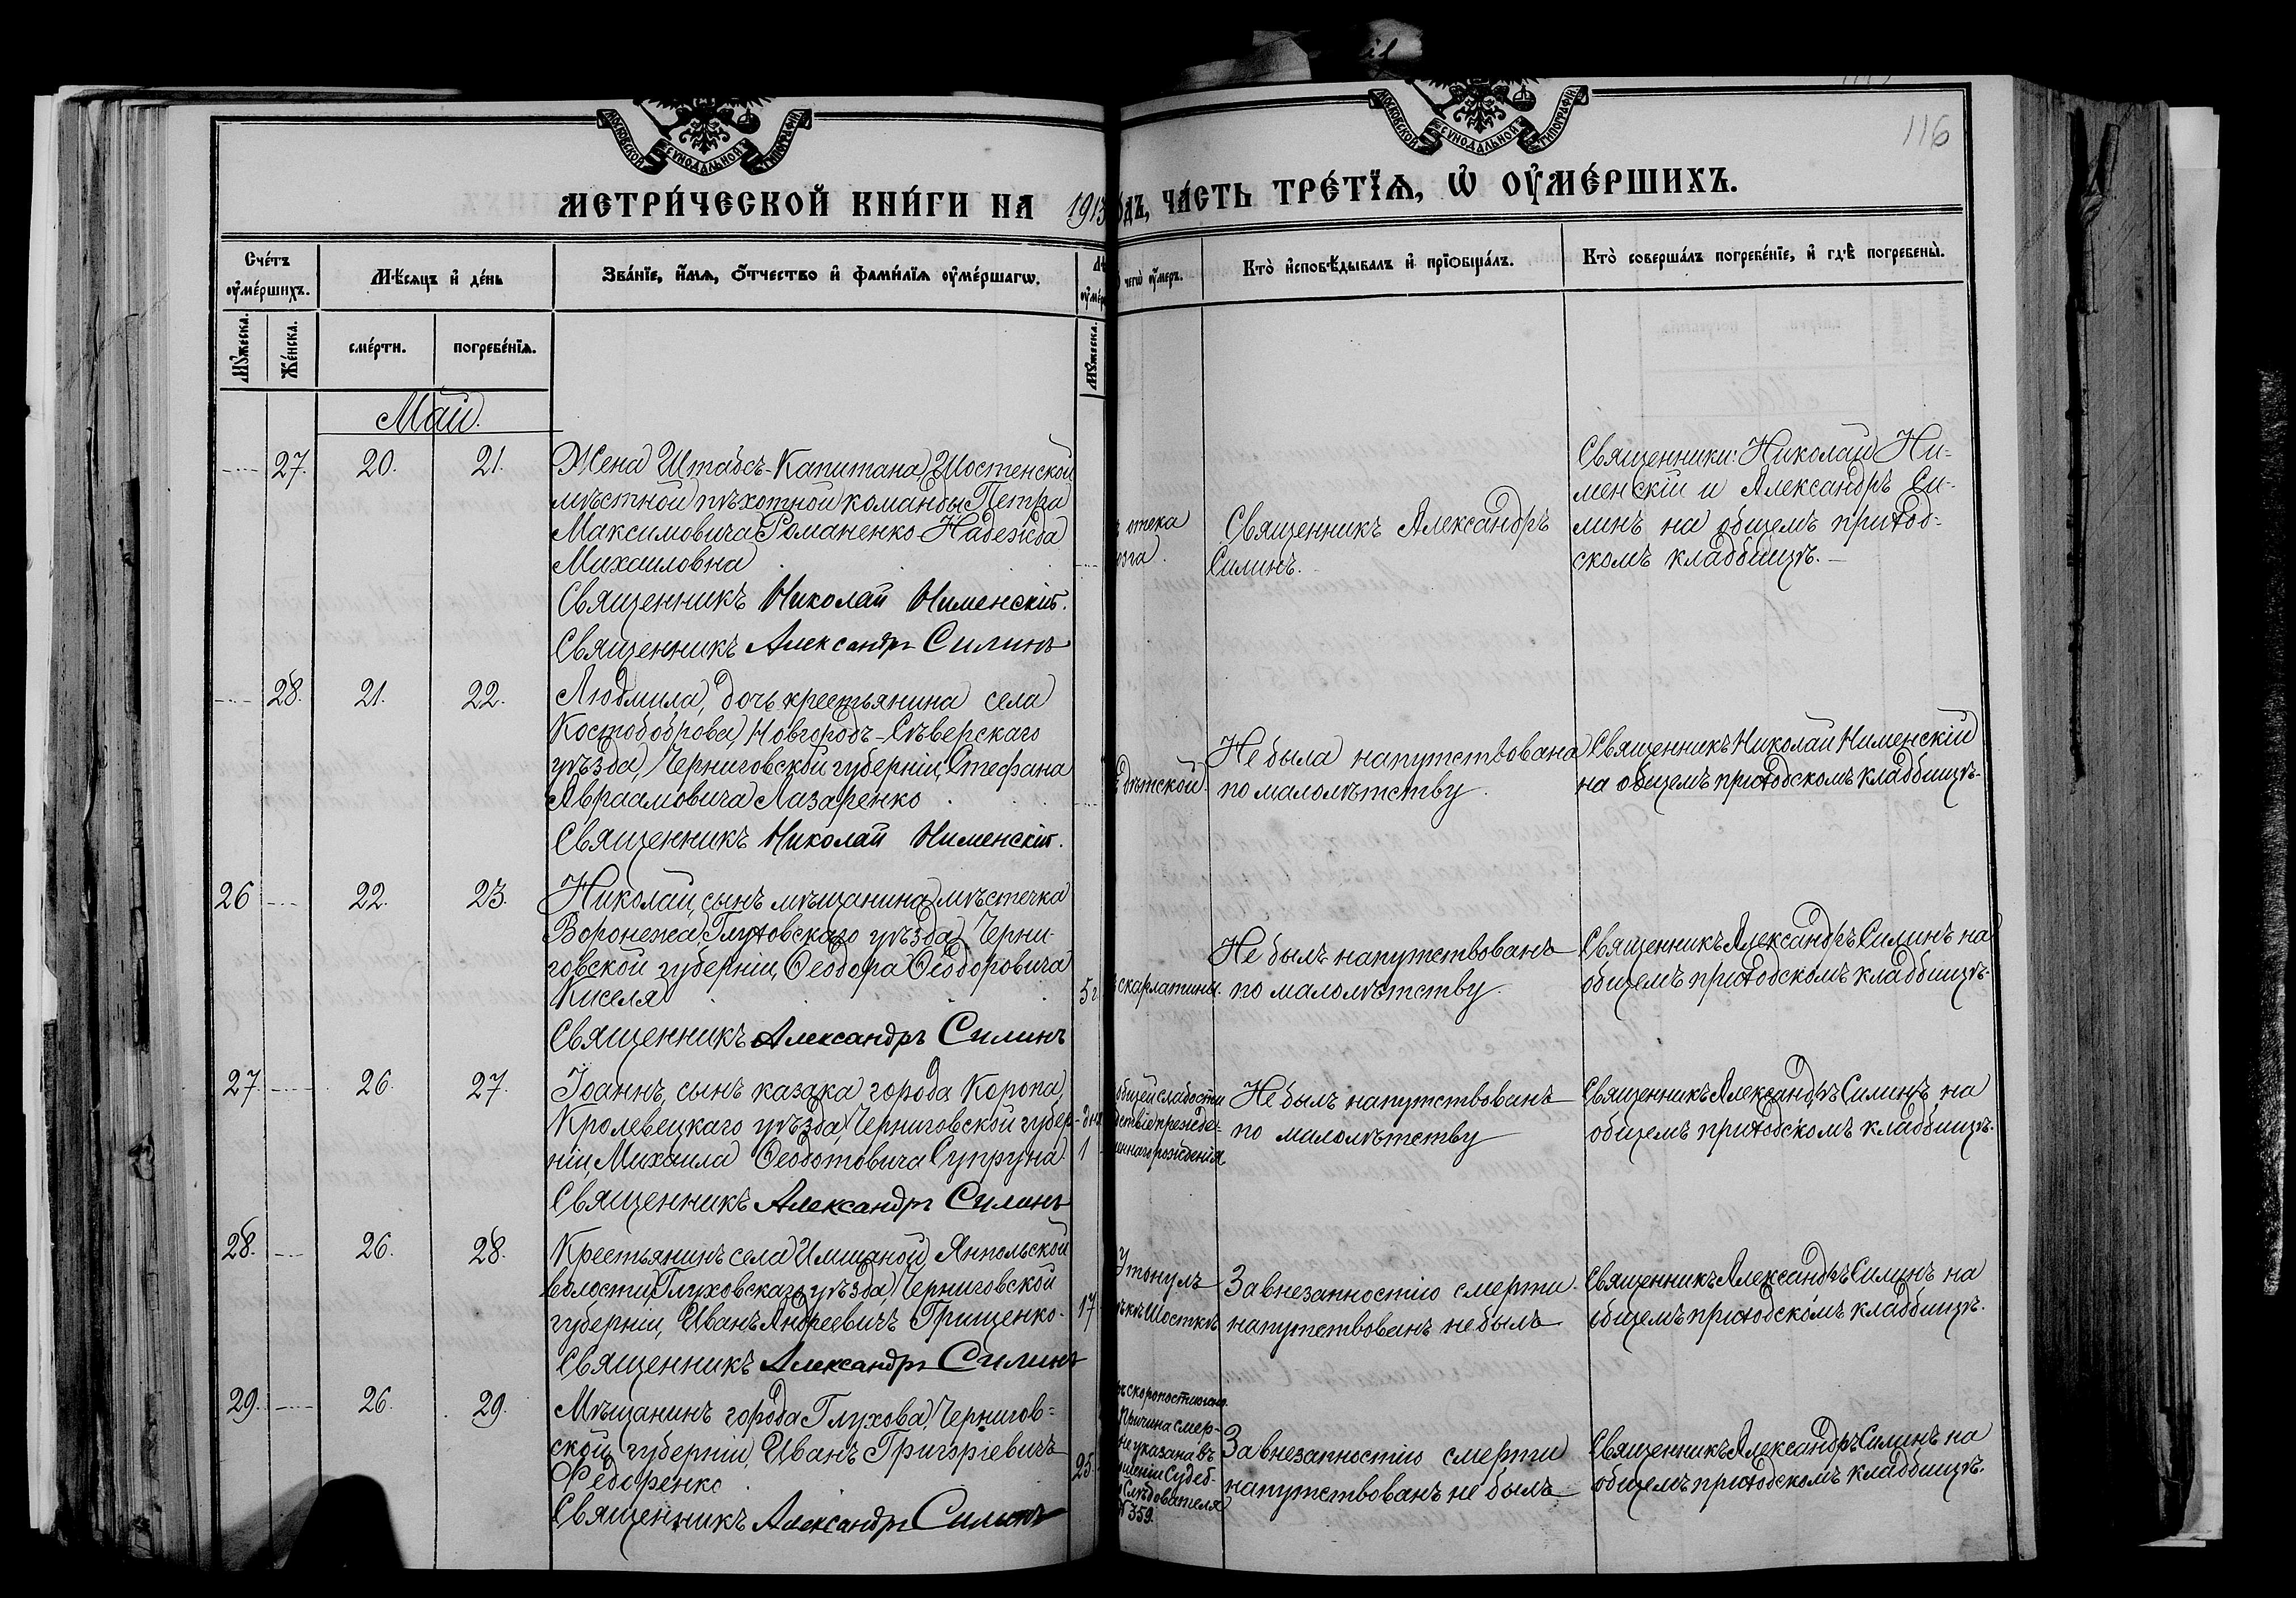 116
МОСКОВСКОЙ СУНОДАЛЬНОЙ ТИПОГРАФИИ
МОСКОВСКОЙ СУНОДАЛЬНОЙ ТИПОГРАФИИ
МЕТРИ́ЧЕСКОЙ КНИ́ГИ НА 1913
ОДЪ, ЧА́СТЬ ТРЕ́ТЇѦ, Ѡ ОУМЕ́РШИХЪ.
Сче́тъ оуме́ршихъ.
Мѣ́сяцъ и де́нь
Зва́нїе, и́мѧ, о́тчество и фами́лїѧ оуме́ршагѡ.
чегѡ оу́меръ.
Кто̀ и҆сповѣ́дывалъ и҆ прїѡбща́лъ.
Кто̀ соверша́лъ погребе́нїе, и҆ гдѣ̀ погребены̀.
Мꙋ́жеска.
Же́нска.
сме́рти.
погребе́нїѧ.
Мꙋ́жеска.
Май.
27. 20. 21.
Жена Штабсъ-Капитана Шостенской
мѣстной пѣхотной команды Петра
Максимовича Романенко Надежда
Михаиловна
Священникъ Николай Нименскій.
Священникъ Александръ Силинъ
отека
зга.
Священникъ Александръ
Силинъ.
Священники: Николай Ни-
менскій и Александръ Си-
линъ на общемъ приход-
скомъ кладбищѣ.
28. 21. 22.
Людмила, дочь крестьянина села
Костоборова, Новгородъ-Сѣверскаго
уѣзда, Черниговской губерніи, Стефана
Авраамовича Лазаренко
Священникъ Николай Нименскій.
дѣтской.
Не была напутствована
по малолѣтству.
Священникъ Николай Нименскій
на общемъ приходскомъ кладбищѣ.
26 22. 23.
Николай, сынъ мѣщанина мѣстечка
Воронежа, Глуховскаго уѣзда, Черни-
говской губерніи, Ѳеодора Ѳеодоровича
Киселя
5 г.
Священникъ Александръ Силинъ
скарлатины.
Не былъ напутствованъ
по малолѣтству.
Священникъ Александръ Силинъ на
общемъ приходскомъ кладбищѣ.
27. 26. 27.
Іоаннъ, сынъ казака города Коропа,
Кролевецкаго уѣзда, Черниговской губер-
ніи, Михаила Ѳеодотовича Супруна
дня
1
Священникъ Александръ Силинъ
общей слабости
дствіе прежде-
еннаго рожденія
Не былъ напутствованъ
по малолѣтству
Священникъ Александръ Силинъ на
общемъ приходскомъ кладбищѣ.
28. 26. 28.
Крестьянинъ села Имшаной, Янпольской
волости, Глуховскаго уѣзда, Черниговской
губерніи, Иванъ Андреевичъ Грищенко.
17
Священникъ Александръ Силинъ
Утонулъ
ѣкѣ Шосткѣ
За внезапностію смерти
напутствованъ не былъ
Священникъ Александръ Силинъ на
общемъ приходскомъ кладбищѣ.
29. 26. 29.
Мѣщанинъ города Глухова, Чернигов-
ской губерніи, Иванъ Григоріевичъ
Федоренко
25.
Священникъ Александръ Силинъ
скоропостижно.
Причина смер-
не указана въ
шеніи Судеб-
Слѣдователя
№ 359.
За внезапностію смерти
напутствованъ не былъ
Священникъ Александръ Силинъ на
общемъ приходскомъ кладбищѣ.